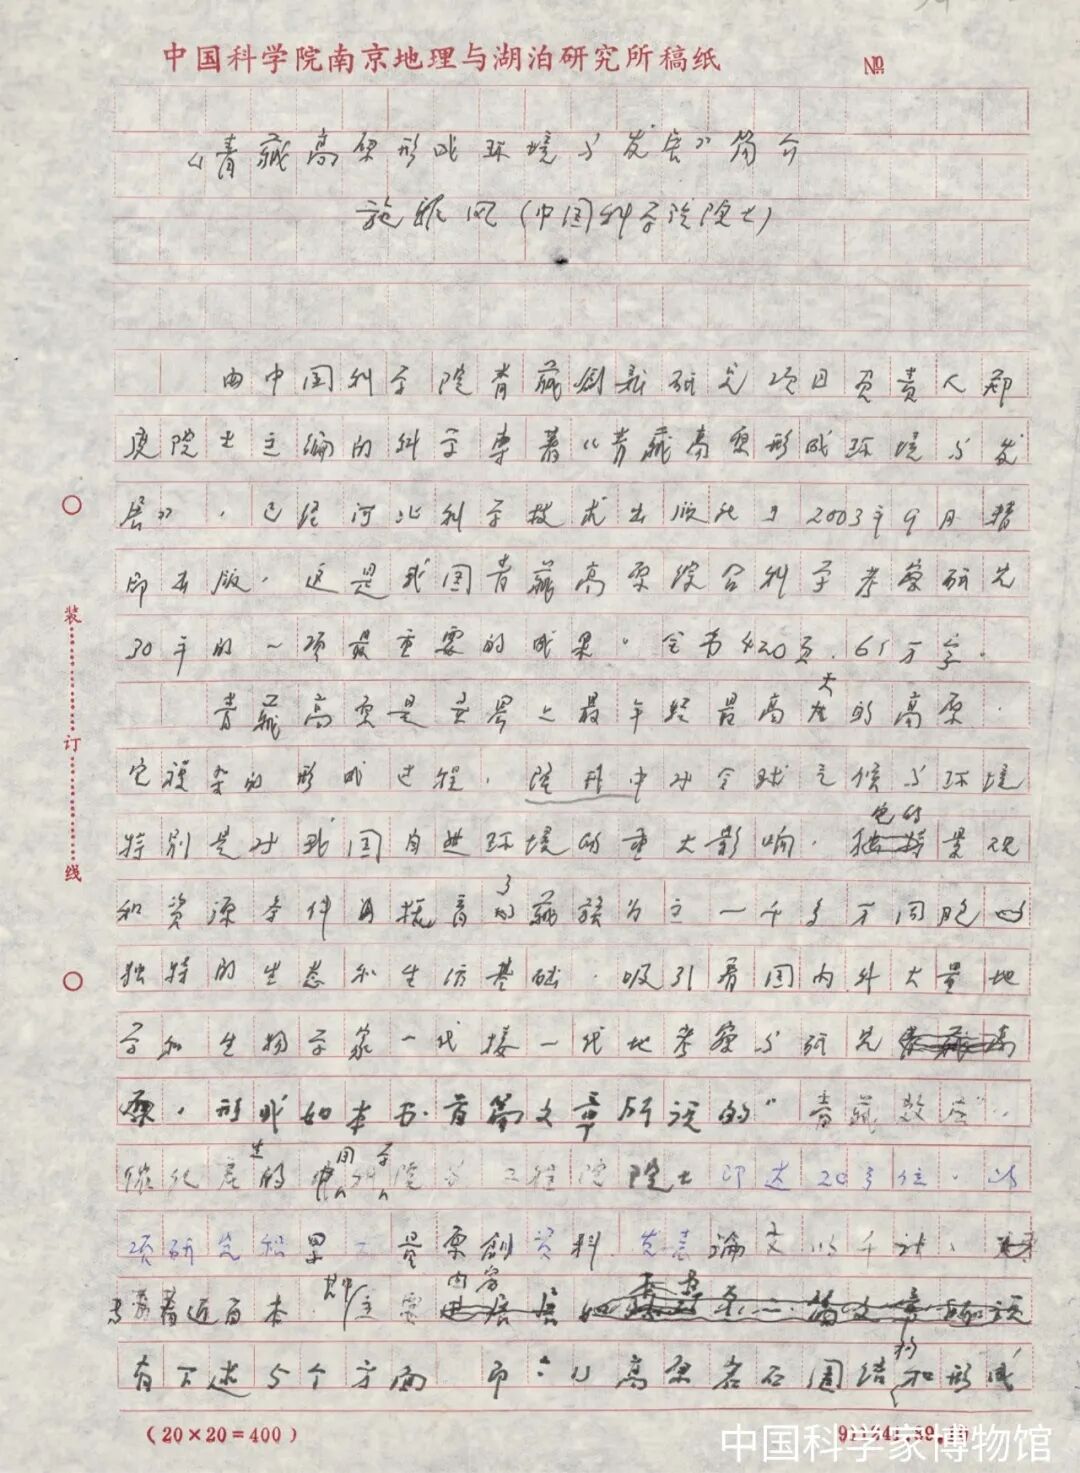 中国科学院南京地理与湖泊研究所稿纸 №
《青藏高原形成环境与发展》简介
施雅风(中国科学院院士)
由中国科学院青藏创新研究项目负责人郑
度院士主编的科学专著《青藏高原形成环境与发
展》,已经河北科学技术出版社于2003年9月精
印出版。这是我国青藏高原综合科学考察研究
30年的一项最重要的成果。全书420页,65万字。
青藏高原是世界上最年轻最高大的高原。
它复杂的形成过程,隆升中对全球气候与环境
特别是对我国自然环境的重大影响,它的独特景观
和资源条件养育了的藏族为主一千多万同胞的
独特的生态和生活基础,吸引着国内外大量地
学和生物学家一代接一代地考察与研究青藏高
原,形成如本书首篇文章所说的"青藏效应"。
催化产生的中国科学院与工程院院士即达20多位,以
项研究积累大量原创资料,发表论文以千计,
专著近百本,其中主要内容
有下述5个方面 即:1)高原岩石圈结构和形成
装 订 线
(20×20=400)
中国科学家博物馆